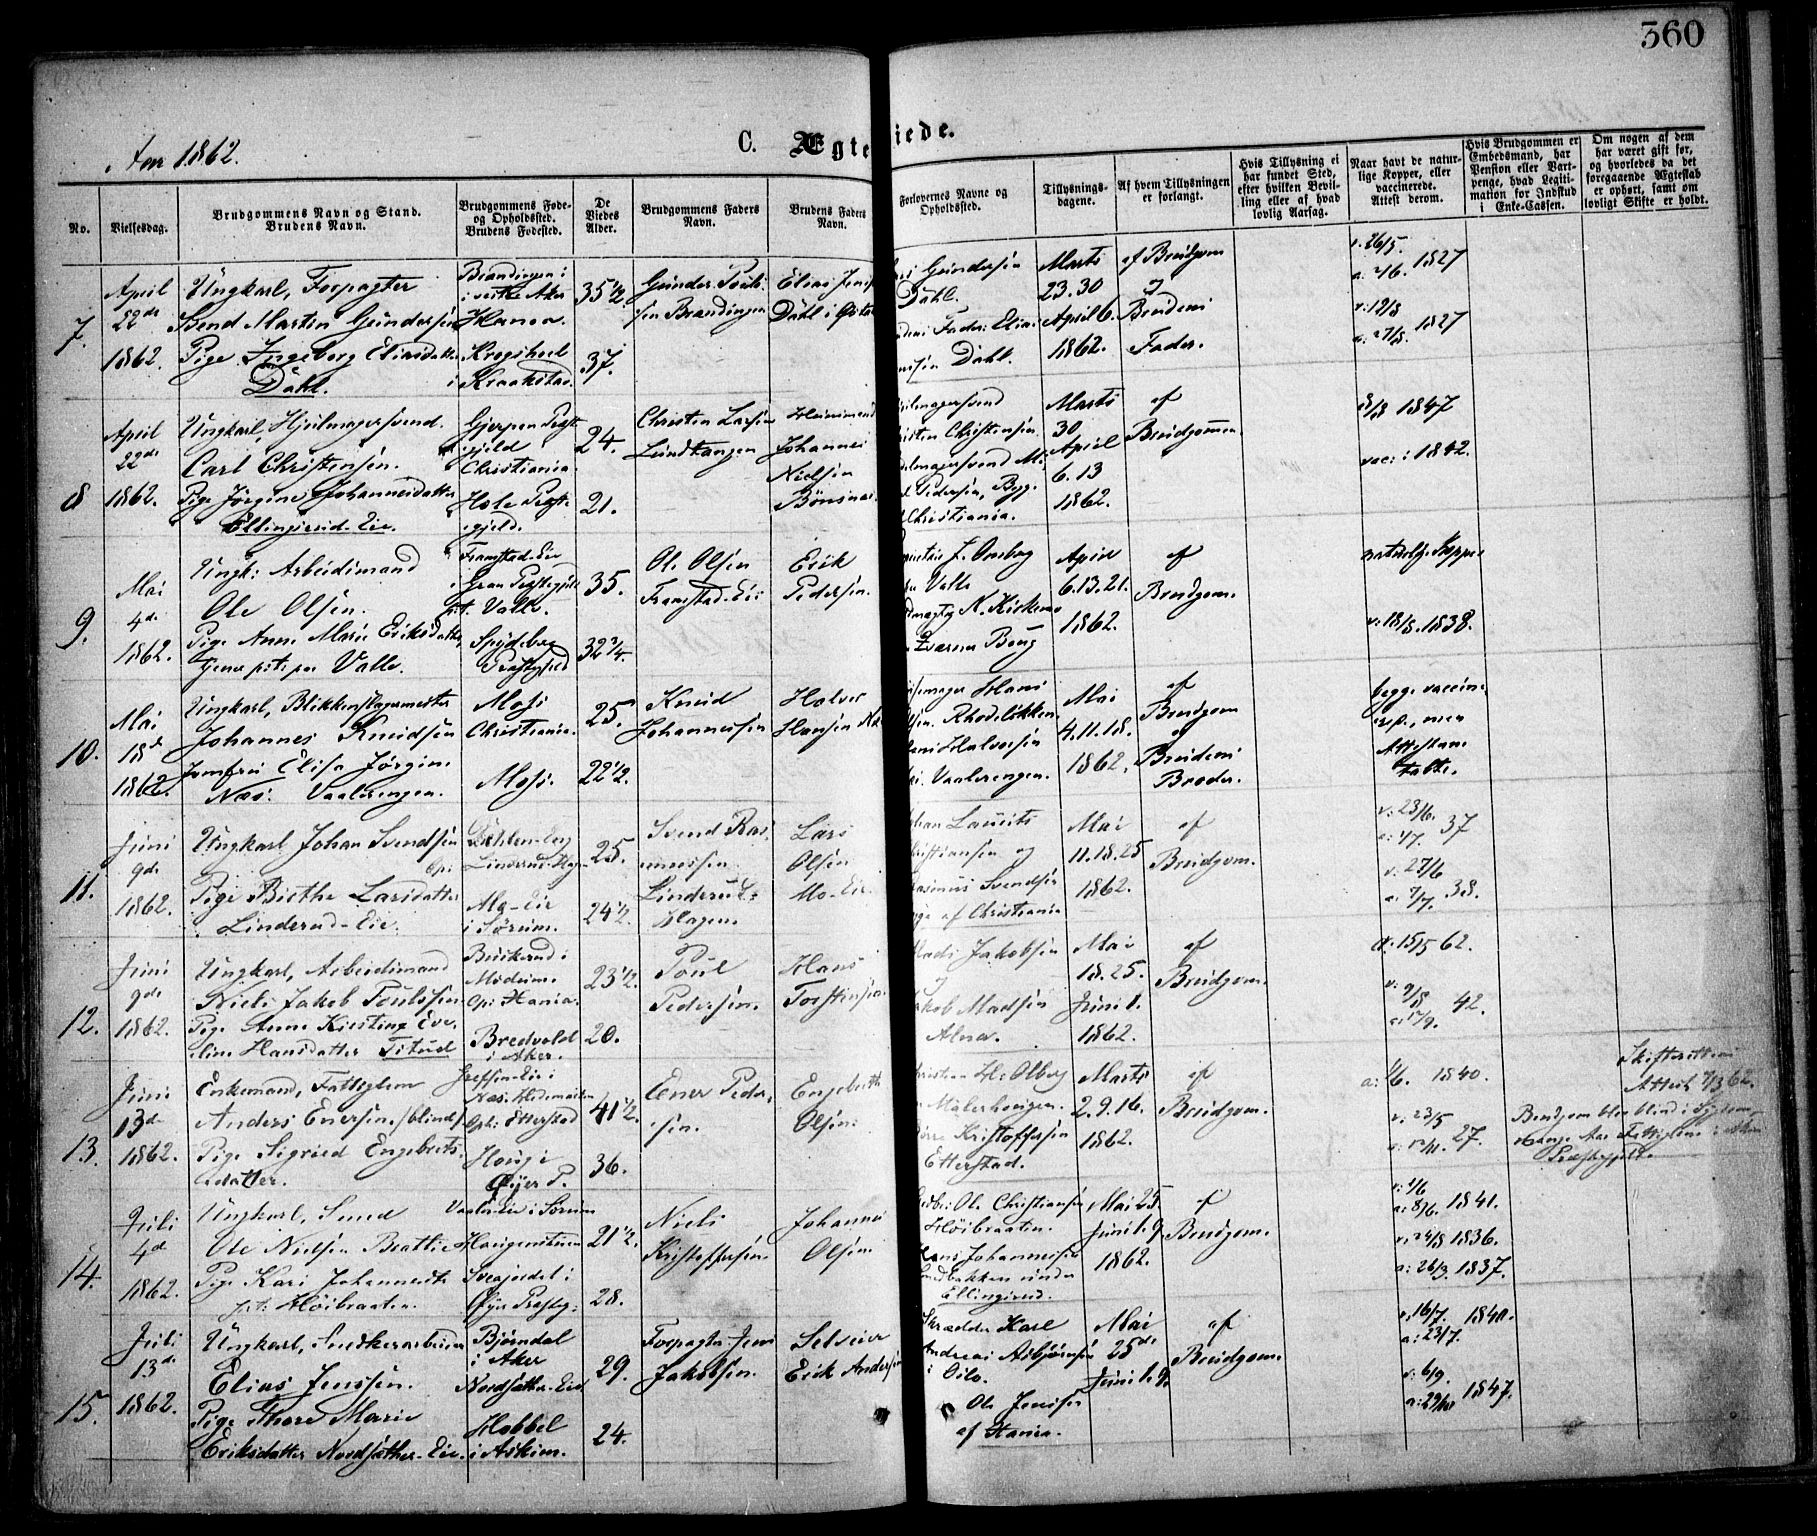 360
Aar 1862.
C. Ægte
iede.
No.
Vielsesdag.
Brudgommens Navn og Stand.
Brudens Navn.
Brudgommens Føde-
og Opholdssted.
Brudens Fødested.
De
Viedes
Alder.
Brudgommens Faders
Navn.
Brudens Faders
Navn.
Forlovernes Navne og
Opholdssted.
Tillysnings-
dagene.
Af hvem Tillysningen
er forlangt.
Hvis Tillysning ei
har fundet Sted,
efter hvilken Bevil-
ling eller af hvad
lovlig Aarsag.
Naar havt de natur-
lige Kopper, eller
vaccinerede.
Attest derom.
Hvis Brudgommen er
Embedsmand, har
Pension eller Vart-
penge, hvad Legiti-
mation for Indskud
i Enke-Cassen.
Om nogen af dem
har været gift før,
og hvorledes da det
foregaaende Ægteskab
er ophørt, samt om
lovligt Skifte er holdt.
7.
April
22de
1862.
Ungkarl, Forpagter
Svend Martin Gundersen
Pige Ingeborg Eliasdatter
Dahl.
Brandingen i
vestre Aker
Hansa.
Krogshoel
i Kraakstad.
35 1/2.
37.
Gunder Pouls-
sen Brandingen
Elias Jens
Dahl i
Gundersen
Dahl.
Fader Elias
Dahl.
Marts
23. 30
April 6.
1862.
af Brudgom
og
Brudens
Fader.
v. 26/5.
1827
v. 19/8
a. 27/8. 1827
8
April
22de
1862.
Ungkarl, Hjulmagersvend.
Carl Christensen.
Pige Jørgine Johannesdatter
Ellingsrud-Eie.
Gjerpen Præst
gjeld
Christiania.
Hole Præste-
gjeld.
24.
21.
Christen Larsen
Lundtangen
Huusmand
Johannes
Nielsen
Bønsnæs
Hjulmagersvend
Christensen
Pedersen, Bygg.
Christiania.
Marts
30
April
6. 13
1862.
af
Brudgommen.
1847
vac: i 1842.
9.
Mai
4de
1862.
Ungk: Arbeidsmand
Ole Olsen.
Pige Anne Marie Eriksdatter,
Tjene pet. paa Valle.
Framstad-Eie
i Gran Præstegjeld
pt. Valle.
Spydeberg
Præstegjeld
35.
32 3/4.
Ole Olsen
Framstad-Eie
Erik
Pedersen.
Valle
April
6. 13. 21.
1862.
af
Brudgom.
naturlige Kopper
v: 18/8. 1838.
10.
Mai
18de
1862.
Ungkarl, Blikkenslagermester
Johannes Knudsen
Jomfru Elise Jørgine
Næs: Vaalerengen.
Moss
Christiania.
Moss.
25.
22 1/2.
Knud
Johannessen
Halvor
Hansen Næs
Hans
Rhodeløkken
Hans Halvorsen
Vaalerengen.
Mai
4. 11. 18.
1862.
af
Brudgom
og
Brudens
Broder.
begge vaccine-
rede, men
Attesterne
tabte.
11.
Juni
9de
1862.
Ungkarl Johan Svendsen
Pige Birthe Larsdatter
Linderud-Eie.
Linderud-Hagen
Mo-Eie
i Sørum.
25.
24 1/2.
Svend Ras-
mussen
Linderud-
Hagen.
Lars
Olsen
Mo-Eie.
Johan Laurits
Christiansen og
Rasmus Svendsen
begge af Christiania
Mai
11. 18. 25
1862.
af
Brudgom.
v. 23/6. 37
a: 4/7.
v. 27/6
a. 7/7. 38.
12.
Juni
9de
1862.
Ungkarl, Arbeidsmand
Niels Jakob Poulssen
Pige Anne Kirstine Eve-
line Hansdatter
Buskerud i
Modum.
Op: Hansa.
Bredvold
i Aker.
23 1/2.
20.
Poul
Pedersen.
Hans
Torstensen
Mads Jakobsen
og
Jakob Madsen
Alna.
Mai
18. 25.
Juni 1.
1862.
af
Brudgom.
a: 15/5 62.
42.
13.
Juni
13de
1862.
Enkemand, Fattiglem
Anders Enersen. /blind/
Pige Sigried Engebrets-
datter.
Næs: Hedemarken
Oph: Etterstad
Houg i
Øyer P.
41 1/2.
36.
Ener Peder-
sen.
Engebreth
Olsen.
Christian H: Olberg
Malerhougen.
Kristoffersen
Etterstad.
Marts
2. 9. 16.
1862.
af
Brudgom.
1840.
v: 23/5
27.
Brudgom blev blind i
mange Aar Fattiglem i Aker
Præstegjeld.
Skifterettens
Attest 7/3 62.
14.
Juli
4de
1862.
Ungkarl, Smed
Ole Nielsen Bratlie
Pige Kari Johannesdtr
pt: Høibraaten.
Vaaler-Eie i Sørum
Haugenstuen
Svegjordet i
Øyer Præsteg:
21 1/2.
28.
Niels
Kristoffersen
Johannes
Olsen
Ole Christiansen
Høibraaten.
Hans Johannessen
Smedbakken under
Ellingsrud.
Mai 25.
Juni 1. 9.
1862.
af
Brudgom.
v: 1/6
a: 8/6. 1841.
v. 24/8 1836.
a: 26/3. 1837.
15.
Juli
13de
1862.
Ungkarl, Snedkerarbeider
Elias Jenssen.
Pige Thore Marie
Eriksdatter Nordsæther-Eie.
Bjørndal
i Aker
Nordsæther-Eie.
Hobbel
i Askim.
29.
24.
Forpagter Jens
Jakobsen
Selveier
Erik Andersen
Skrædder Karl
Andreas Asbjørnsen
i Oslo.
Ole Jenssen
af Hansa.
Mai
25de
Juni 1. 9.
af
Brudgom.
v: 16/7. 1840.
a: 23/7.
v: 6/9.
a: 29/10 1847.